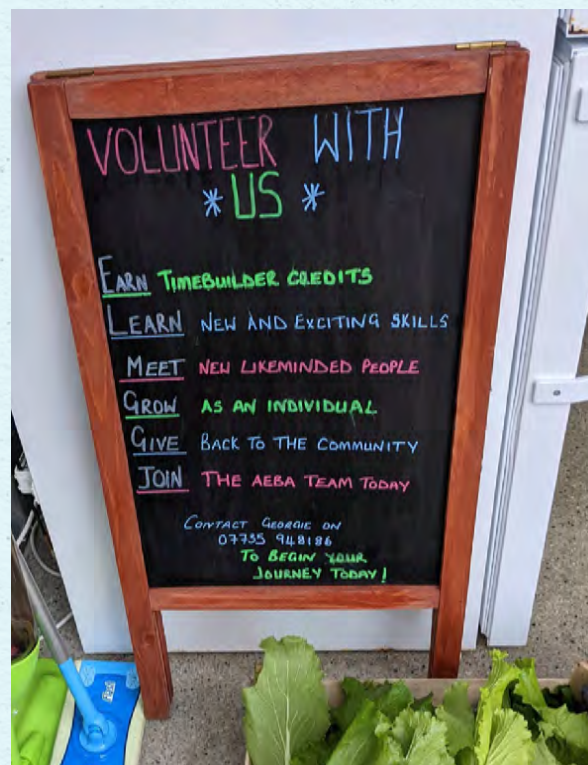 VOLUNTEER WITH
* US *
EARN TIMEBUILDER CREDITS
LEARN NEW AND EXCITING SKILLS
MEET NEW LIKEMINDED PEOPLE
GROW AS AN INDIVIDUAL
GIVE BACK TO THE COMMUNITY
JOIN THE AEBA TEAM TODAY
CONTACT GEORGIE ON
07735 948186
TO BEGIN YOUR
JOURNEY TODAY!